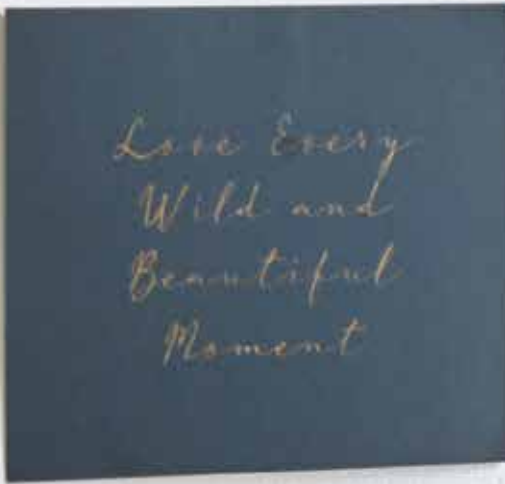 Love Every
Wild and
Beautiful
Moment